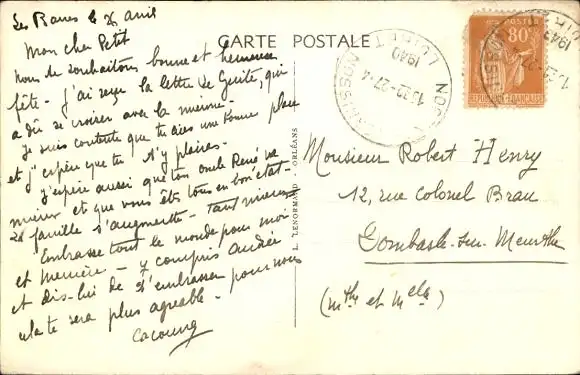 Les Bancs le 26 Avril
Mon cher Petit
Nous te souhaitons bonne et heureuse
fête - J'ai reçu la lettre de Guite, qui
a dû se croiser avec la mienne -
Je suis contente que tu aies une bonne place
et j'espère que tu t'y plaires -
J'espère aussi que ton oncle René va
mieux et que vous êtes tous en bon état -
La famille s'augmente - Tant mieux
Embrasse tout le monde pour moi
et Memère - y compris Andrée
et dis-lui de t'embrasser pour nous
cela te sera plus agréable -
CARTE POSTALE
L. LENORMAND - ORLÉANS
1522-27-4
1940
LOIRET
POSTES
80c
REPUBLIQUE FRANÇAISE
Monsieur Robert Henry
12, rue Colonel Brau
Dombasle-sur-Meurthe
(Mthe et Mlle)